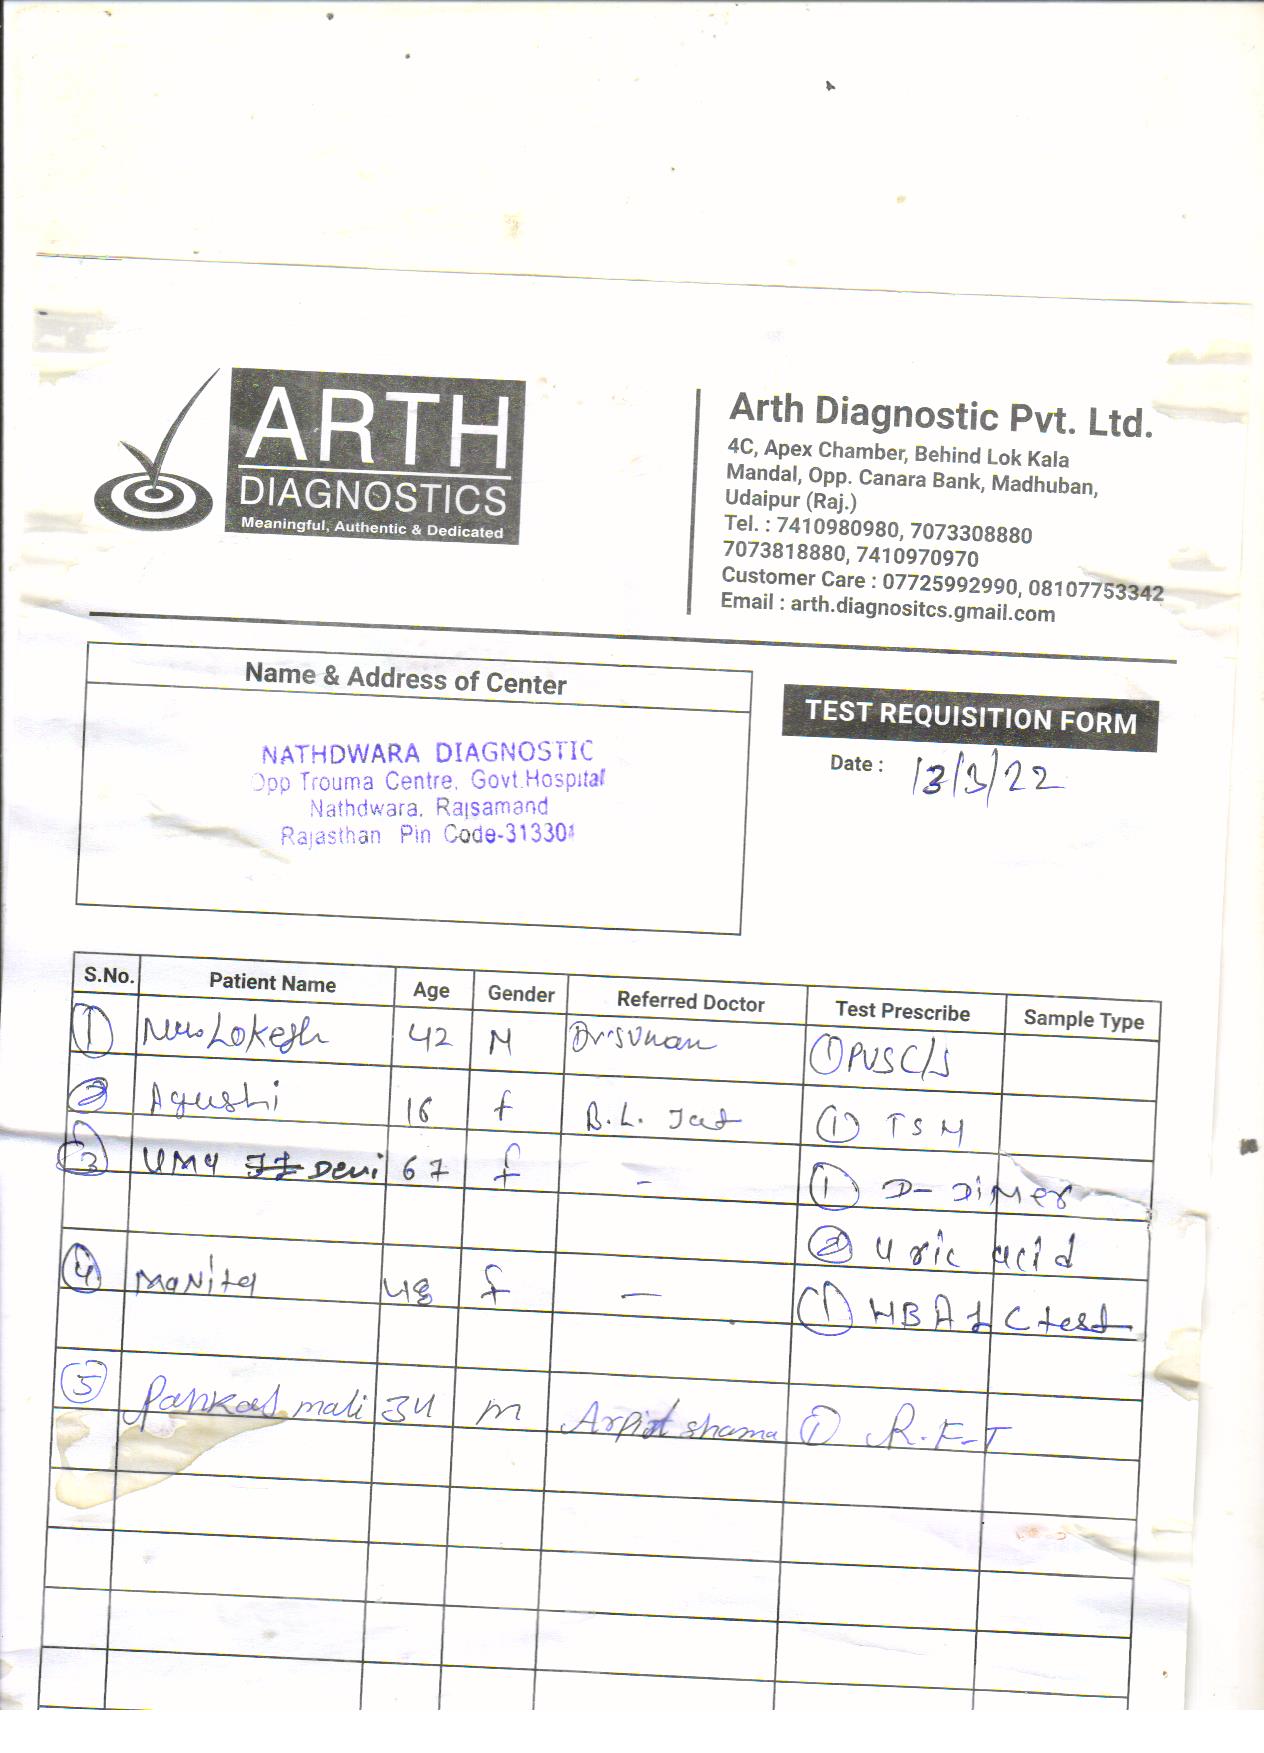 ARTH
DIAGNOSTICS
Meaningful, Authentic & Dedicated
Arth Diagnostic Pvt. Ltd.
4C, Apex Chamber, Behind Lok Kala
Mandal, Opp. Canara Bank, Madhuban,
Udaipur (Raj.)
Tel. : 7410980980, 7073308880
7073818880, 7410970970
Customer Care : 07725992990, 08107753342
Email : arth.diagnositcs.gmail.com
Name & Address of Center
NATHDWARA DIAGNOSTIC
Opp Trouma Centre, Govt.Hospital
Nathdwara, Rajsamand
Rajasthan Pin Code-313301
TEST REQUISITION FORM
Date : 13/3/22
S.No. Patient Name Age Gender Referred Doctor Test Prescribe Sample Type
1 Lokesh 42 M 1 PUS C/S
2 Ayushi 16 f B.L. Jat 1 TSH
3 Devi 67 f - 1 D-Dimer
2 Uric acid
4 Manita 48 f - 1 HBA1C test
5 Pankaj mali 34 m Arpit sharma 1 R.F.T